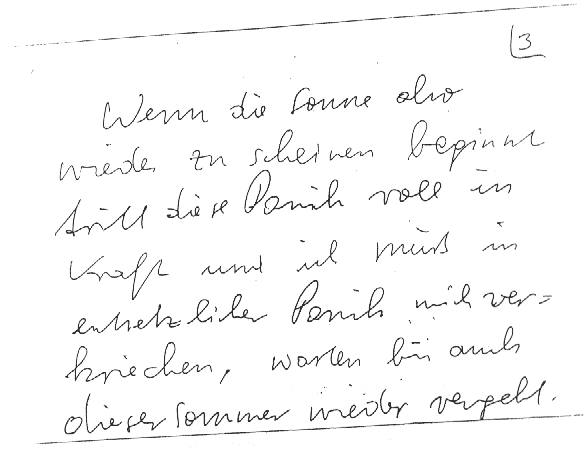 3
Wenn die Sonne also
wieder zu scheinen beginnt
tritt diese Panik voll in
Kraft und ich muß in
entsetzlicher Panik mich ver=
kriechen, warten bis auch
dieser Sommer wieder vergeht.